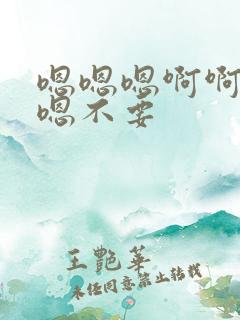 嗯嗯嗯啊啊
嗯不要
王艷華
未经同意禁止转载